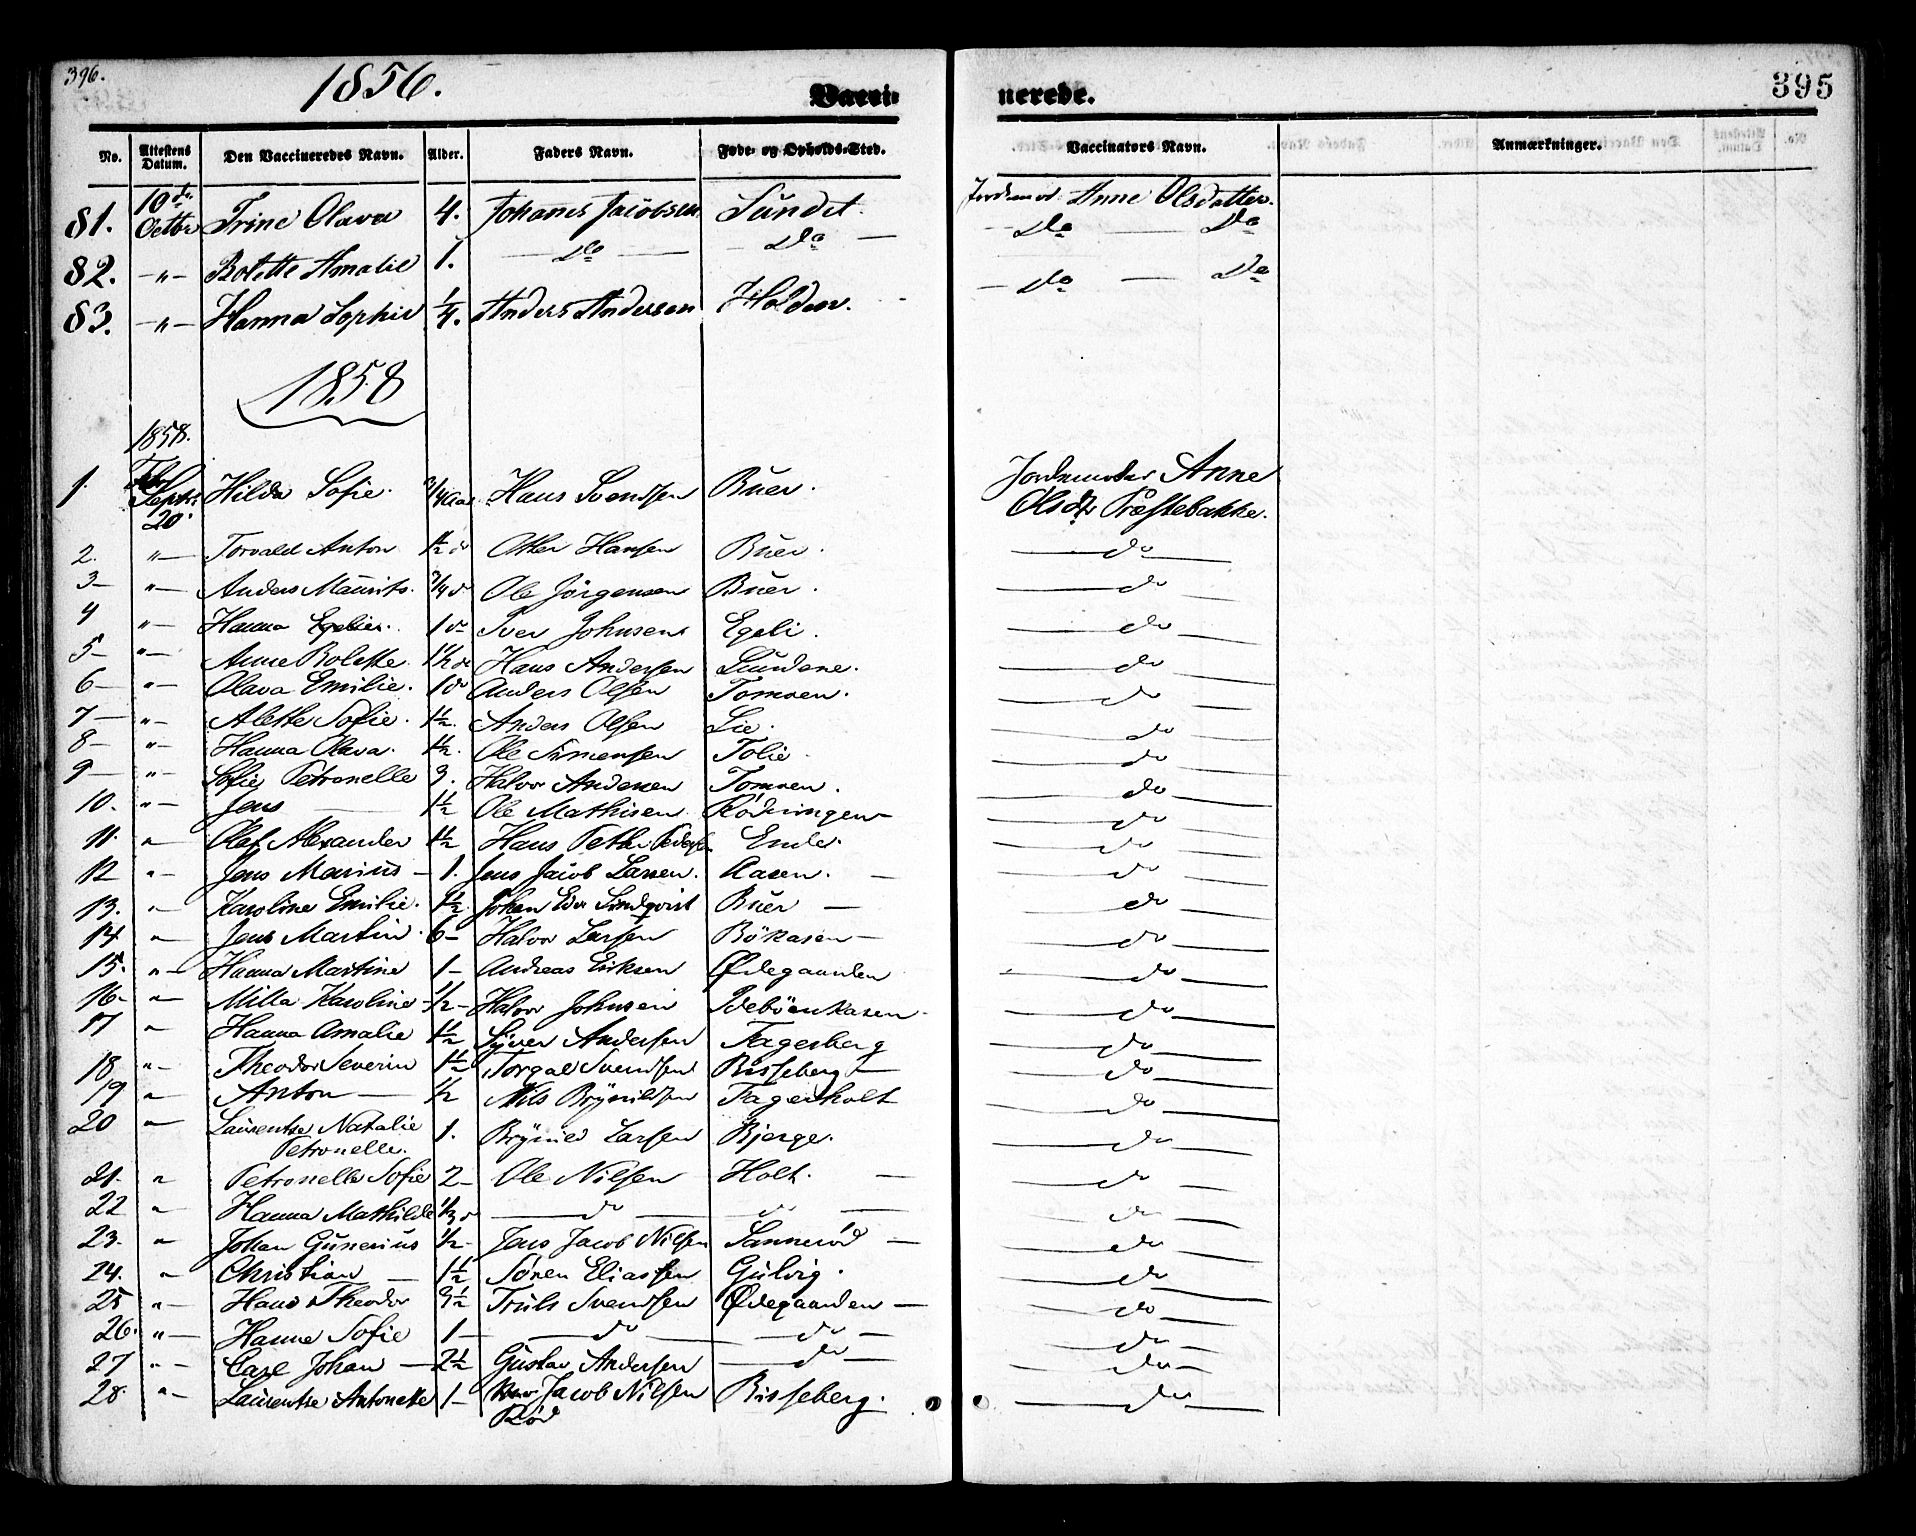 396.
1856.
Vacci-
nerede.
395
No. Attestens Datum. Den Vaccineredes Navn. Alder. Faders Navn. Føde- og Opholds-Sted. Vaccinators Navn. Anmærkninger.
81. 10de Octbr Trine Olava 4. Johannes Jacobsen Sundet. Jordemod. Anne Olsdatter.
82. —"— Bolette Amalie 1. — Do — — Do — — Do — Do
83. —"— Hanna Sophie 1/4. Anders Andersen Holden. — Do — Do
1858
1858.
1. Septr 20. Hilda Sofie. 3/4 Aar Hans Svendsen Buer. Jordemoder Anne
Olsdtr Præstebakke.
2. "— Torvald Anton 1½ do Other Hansen Buer. — do —
3— "— Anders Maurits. 3/4 do Ole Jörgensen Buer. — do —
4 "— Hanna 1 do Iver Johnsen Egeli. — do —
5— "— Anne Bolette. 1½ do Hans Andersen — do —
6— "— Olava Emilie. 1 do Anders Olsen Tomten. — do —
7— "— Alette Sofie. 1½. Anders Olsen Lie. — do —
8— "— Hanna Olava. 1½. Ole Simensen Tolie. — do —
9— "— Sofie Petronelle 3. Halvor Andersen Tomten. — do —
10. "— Jens — 1½ Ole Mathisen. Rödningen — do —
11. " Olaf Alexander 1½ Hans Peter Pedersen — do —
12 "— Jens Marius — 1. Jens Jacob Larsen. Aasen. — — do —
13. "— Karoline Emilie. Johan Edv Lindqvist Buer — — do —
14 "— Jens Martin. 6— Halvor Larsen Bökasen — — do —
15. "— Hanna Martine 1— Andreas Eriksen Ødegaarden — do —
16— "— Milla Karoline — ½— Halvor Johnsen Ideböenkasen — do —
17 "— Hanna Amalie 1½ Syver Andersen Fagerberg — do —
18 "— Theodor Severin 1½ Torgal Svendsen Bisseberg — — do —
19 "— Anton — ½ Nils Brynildsen Fagerholt — do —
20 "— Laurentse Natalie 1. Brynild Larsen Bjerge. — do —
Petronelle.
21. " Petronelle Sofie 2— Ole Nilsen Holt. — — do —
22 " Hanna Mathilde — do — do — — do —
23. " Johan Gunerius ½— Jens Jacob Nilsen Sannerød — — do —
24. "— Christian — 1½ Sören Eliassen Gulvig. — do —
25 "— Hans Theodor 3½ Truls Svendsen Ødegaarden — — do —
26. "— Hanne Sofie 1— — do — — do — — do —
27 "— Carl Johan — 2½ Gustav Andersen — do — — do —
28. "— Laurentse Antonette 1— Jacob Nilsen Bisseberg. — do —
Röd